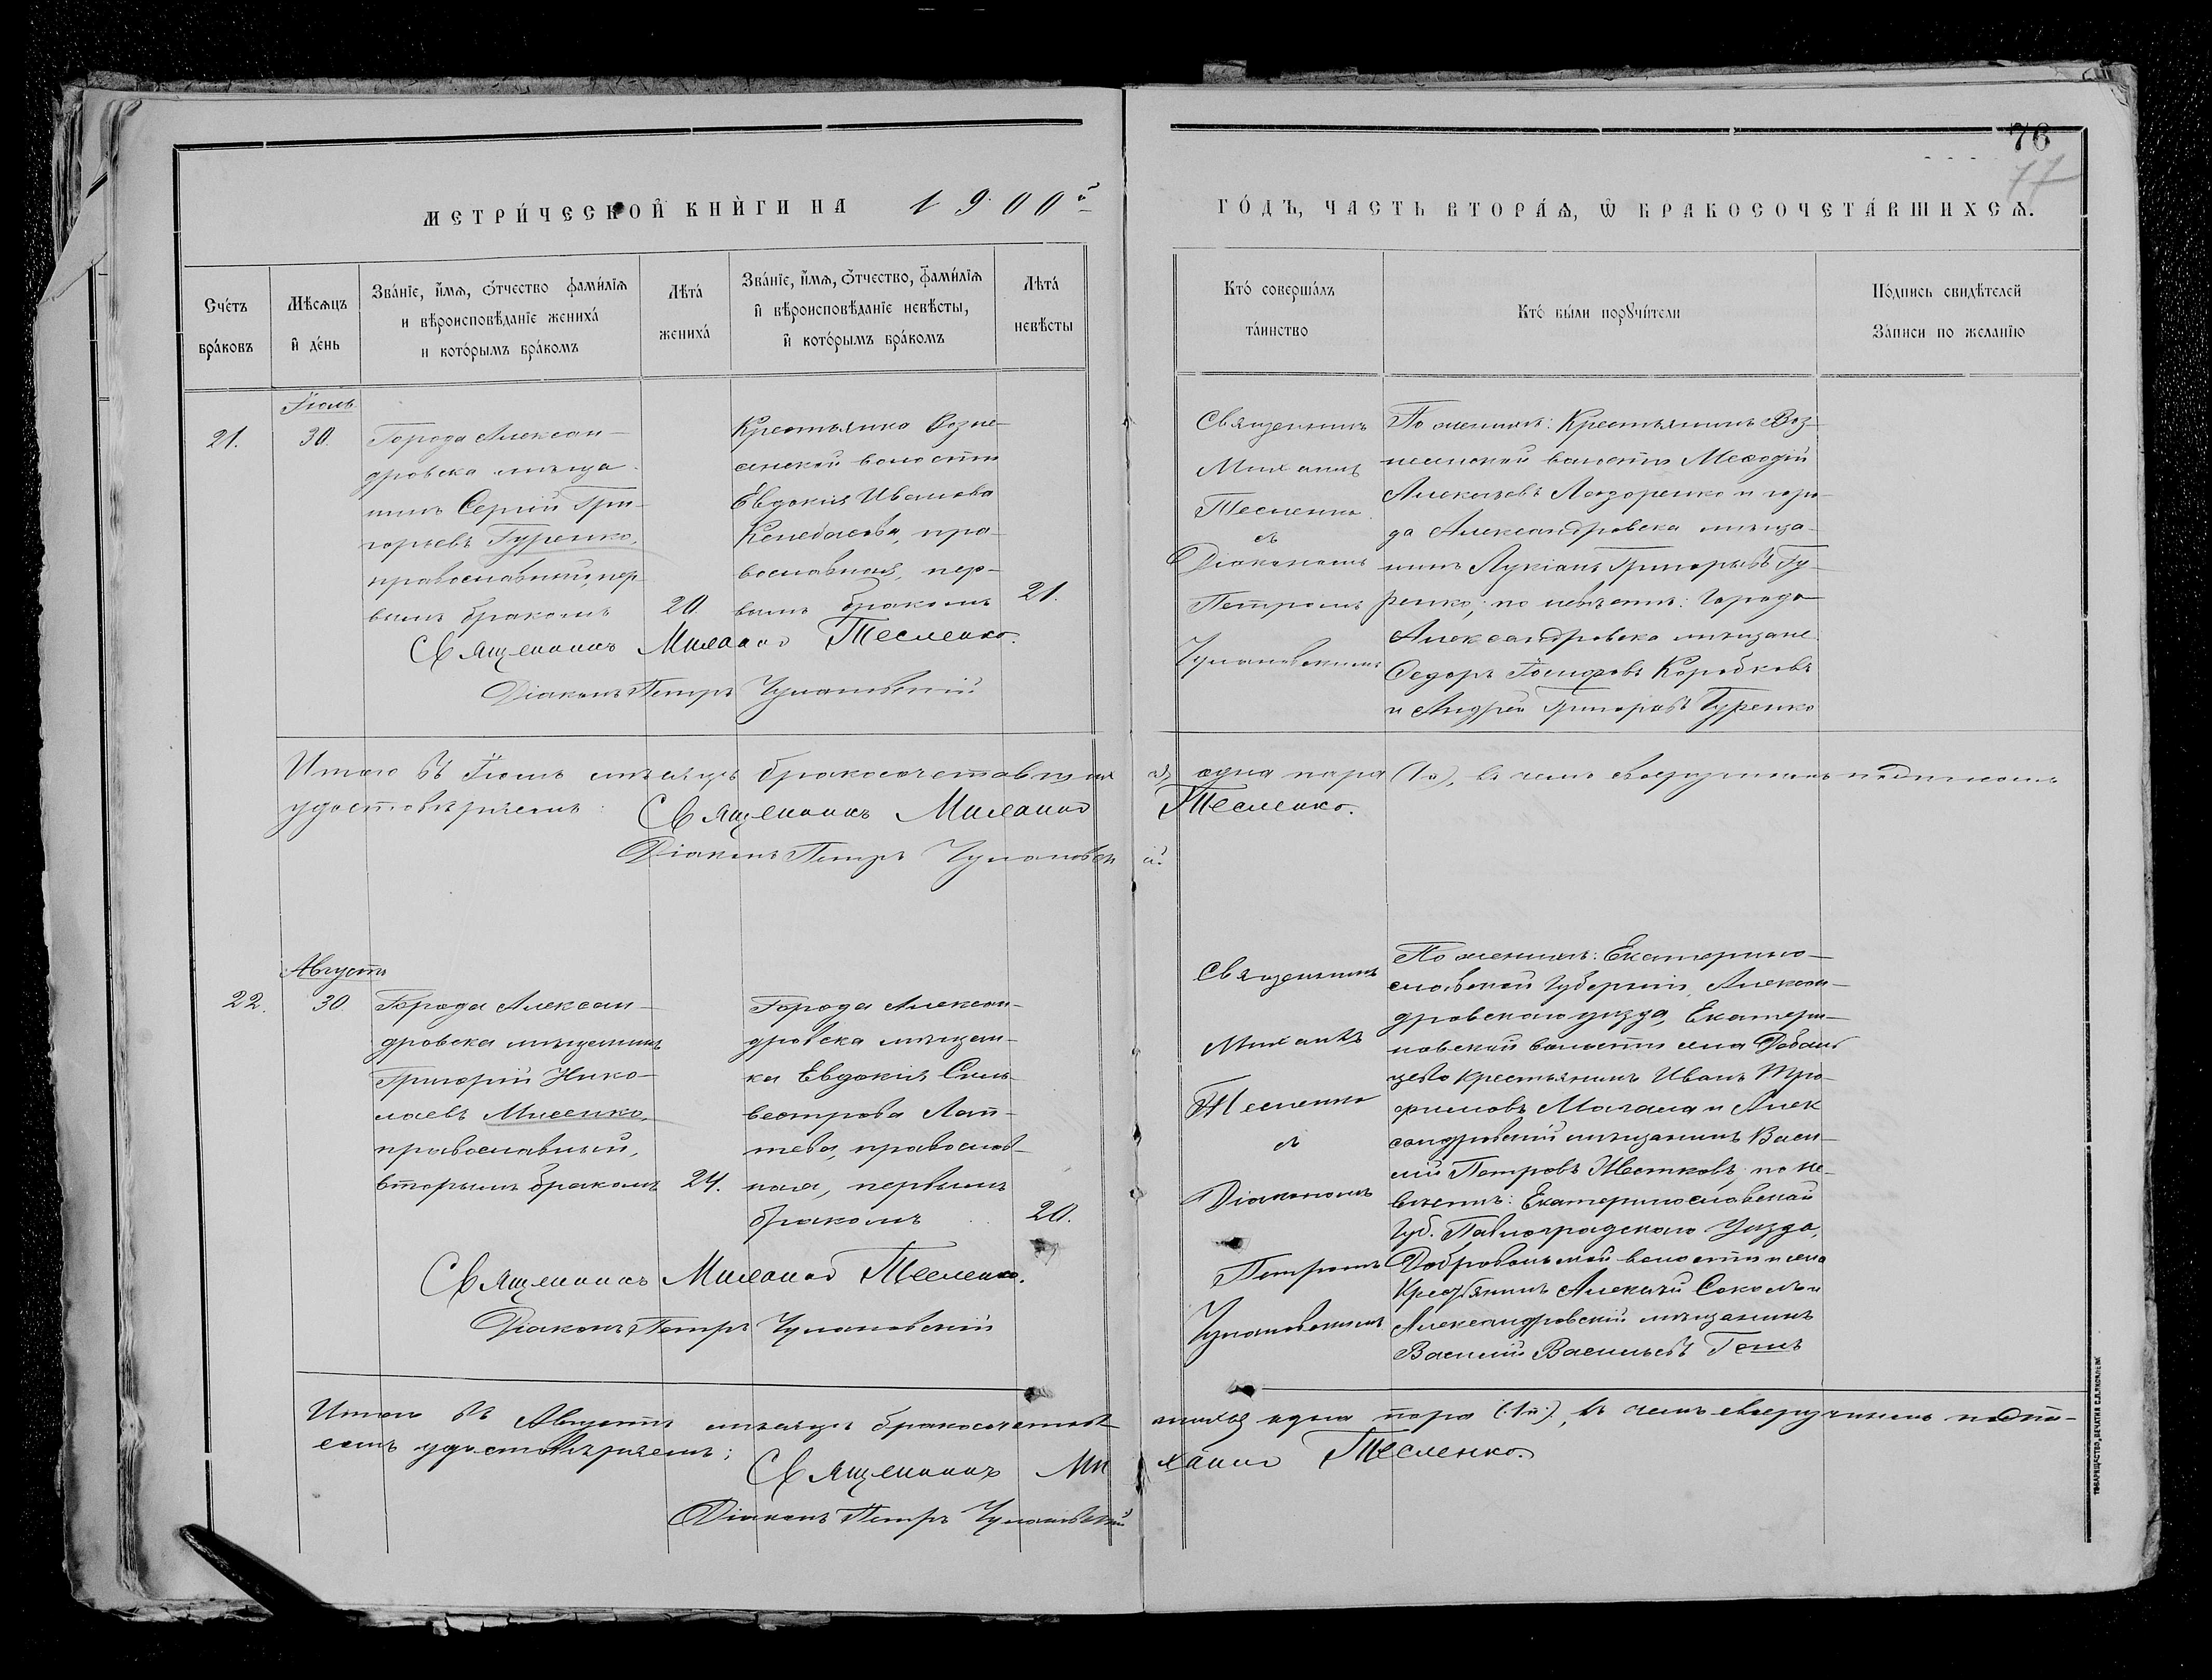 76
77
МЕТРИ́ЧЕСКОЙ КНИ́ГИ НА 1900й
ГО́ДЪ, ЧАСТЬ ВТОРА́Ѧ, Ѿ БРАКОСОЧЕТА́ВШИХСѦ.
Сче́тъ
бра́ковъ
Мѣ́сѧцъ
и҆ де́нь
Зва́нїе, и҆́мѧ, ѻ҆́тчество фами́лїѧ
и вѣроисповѣ́данїе жениха̀
и кото́рымъ бра́комъ
Лѣ́та̀
жениха̀
Зва́нїе, и҆́мѧ, ѻ҆́тчество, фами́лїѧ
и҆ вѣроисповѣ́данїе невѣ́сты,
и҆ кото́рымъ бра́комъ
Лѣ́та̀
невѣ́сты
Кто̀ соверша́лъ
та́инство
Кто̀ бы́ли порꙋчи́тели
По́дпись свидѣ́телей
За́писи по жела́нїю
21.
Іюль
30.
Города Алексан-
дровска мѣща-
нинъ Сергій Гри-
горьевъ Гуренко,
православный, пер-
вымъ бракомъ
20.
Крестьянка Возне-
сенской волости
Евдокія Иванова
православная, пер-
вымъ бракомъ
21.
Священникъ
Михаилъ
Тесленко
съ
Діакономъ
Петромъ
Чулановскимъ
По женихѣ: Крестьянинъ Воз-
несенской волости Меѳодій
Алексѣевъ Лазоренко и горо-
да Александровска мѣща-
нинъ Лукіанъ Григорьевъ Гу-
ренко; по невѣстѣ: Города
Александровска мѣщане
Ѳедоръ Іосифовъ Коробковъ
и Андрей Григорьевъ Гуренко
Священникъ Михаилъ Тесленко.
Діаконъ Петръ Чулановскій
Итого въ Іюлѣ мѣсяцѣ бракосочетавшихся одна пара (1п), въ чемъ своеручнымъ подписомъ
удостовѣряемъ: Священникъ Михаилъ Тесленко.
Діаконъ Петръ Чулановскій.
22.
Августъ
30.
Города Алексан-
дровска мѣщанинъ
Григорій Нико-
лаевъ Мисенко,
православный,
вторымъ бракомъ
24.
Города Алексан-
дровска мѣщан-
ка Евдокія Силь-
вестрова Лап-
тева, православ-
ная, первымъ
бракомъ
20.
Священникъ
Михаилъ
Тесленко
съ
Діакономъ
Петромъ
Чулановскимъ
По женихѣ: Екатерино-
славской Губерніи, Алексан-
дровскаго уѣзда, Екатери-
новской волости села
крестьянинъ Иванъ Тро-
фимовъ и Алек
сандровскій мѣщанинъ Васи-
лій Петровъ по не-
вѣстѣ: Екатеринославской
Губ. Павлоградскаго Уѣзда,
Добровольской волости и села
Крестьянинъ Алексѣй Соколъ и
Александровскій мѣщанинъ
Василій Васильевъ
Священникъ Михаилъ Тесленко.
Діаконъ Петръ Чулановскій
Итого въ Августѣ мѣсяцѣ бракосочетавшихся одна пара (1п), въ чемъ своеручнымъ подпи-
сомъ удостовѣряемъ; Священникъ Михаилъ Тесленко.
Діаконъ Петръ Чулановскій